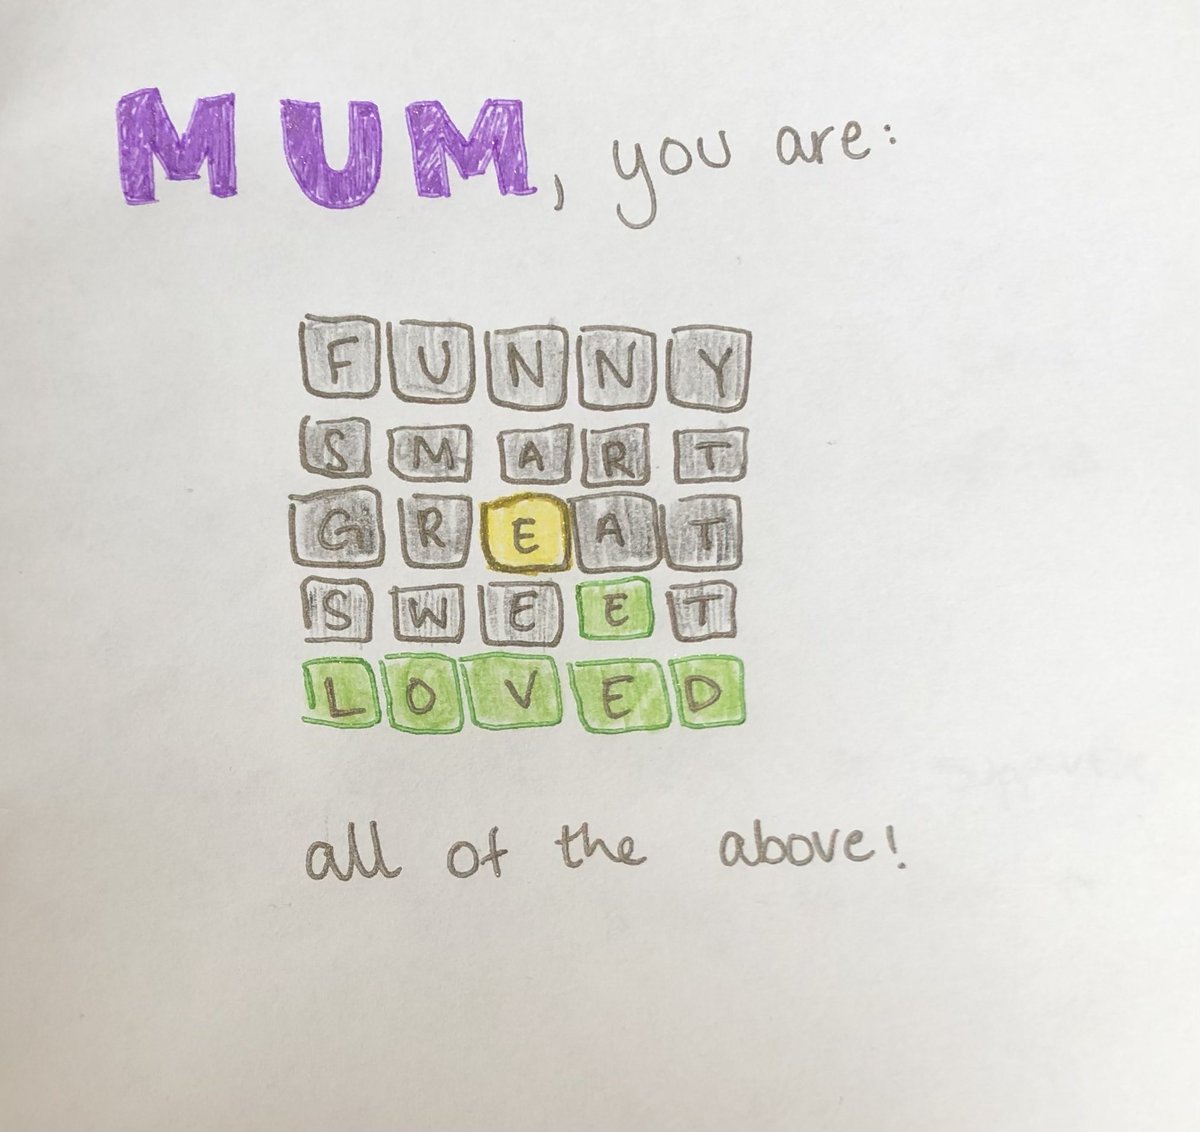 MUM, you are:
FUNNY
SMART
GREAT
SWEET
LOVED
all of the above!